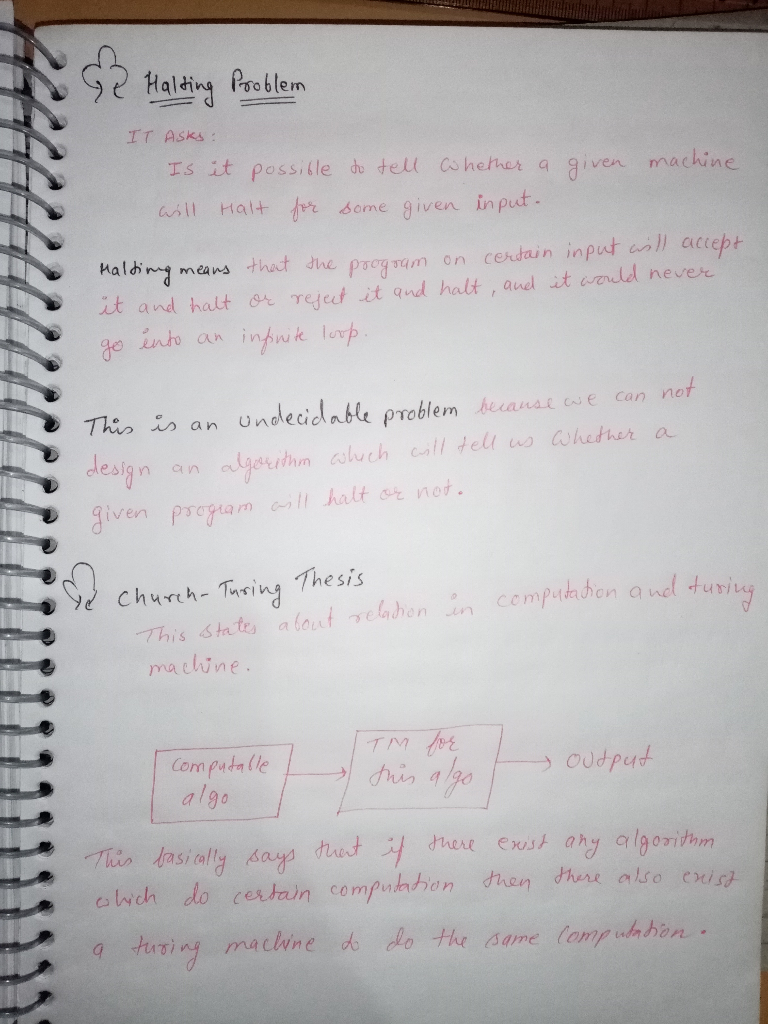 Halting Problem
IT Asks:
Is it possible to tell whether a given machine
will Halt for some given input.
Halting means that the program on certain input will accept
it and halt or reject it and halt, and it would never
go into an infinite loop.
This is an undecidable problem because we can not
design an algorithm which will tell us whether a
given program will halt or not.
Church-Turing Thesis
This states about relation in computation and turing
machine.
Computable
algo
TM for
this algo
output
This basically says that if there exist any algorithm
which do certain computation then there also exist
a turing machine to do the same computation.